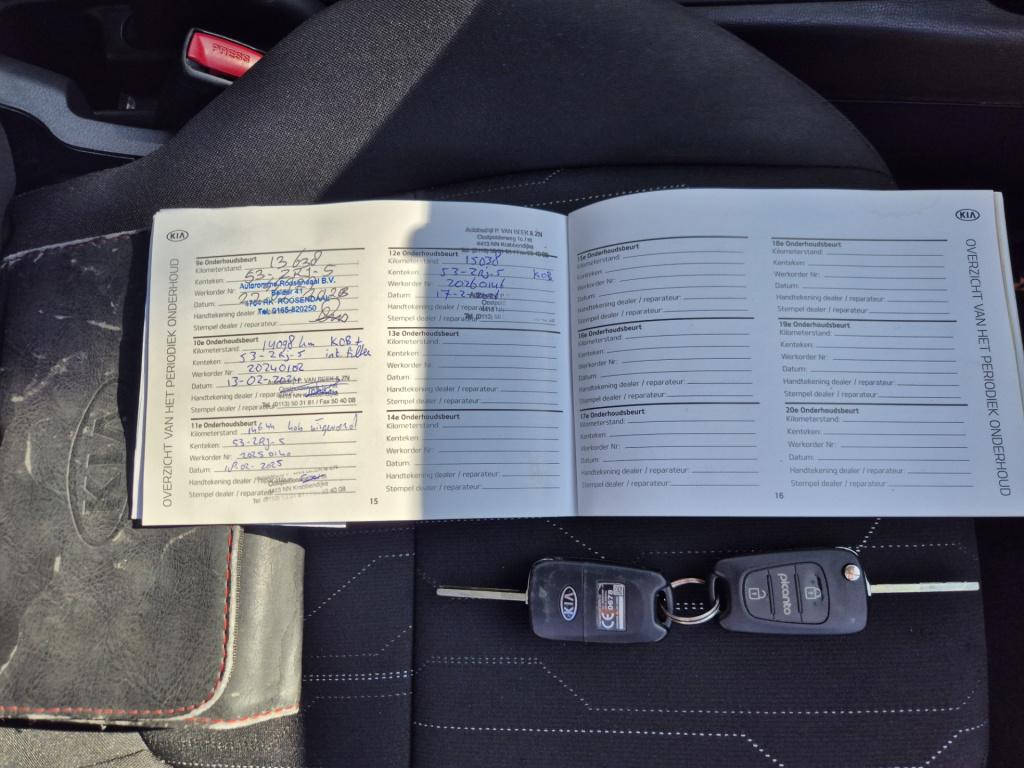 PRESS
KIA
OVERZICHT VAN HET PERIODIEK ONDERHOUD
9e Onderhoudsbeurt 13638
Kilometerstand:
Kenteken: 53-ZRJ-5
Werkorder Nr:
Autoronde Roosendaal B.V.
41
4704 RK ROOSENDAAL
Tel: 0165-820250
Datum:
Handtekening dealer
Stempel dealer / reparateur:
10e Onderhoudsbeurt
Kilometerstand: 14098 km KOB +
Kenteken: 53-ZRJ-5 int filter
Werkorder Nr: 20240102
Datum: 13-02-2024
VAN BEEK & ZN
Handtekening dealer / reparateur:
Stempel dealer / reparateur:
Tel. (0113) 50 31 81 / Fax 50 40 08
11e Onderhoudsbeurt
Kilometerstand:
Kenteken: 53-ZRJ-5
Werkorder Nr:
Datum: 02-2025
Handtekening dealer / reparateur:
4413 NN Krabbendijke
Stempel dealer / reparateur:
15
Autobedrijf P. VAN BEEK & ZN
Oostpolderweg
4413 NN Krabbendijke
12e Onderhoudsbeurt
Kilometerstand: 15038
Kenteken: 53-ZRJ-5 KOB
Werkorder Nr:
Datum:
Handtekening dealer / reparateur:
Stempel dealer / reparateur:
13e Onderhoudsbeurt
Kilometerstand:
Kenteken:
Werkorder Nr:
Datum:
Handtekening dealer / reparateur:
Stempel dealer / reparateur:
14e Onderhoudsbeurt
Kilometerstand:
Kenteken:
Werkorder Nr:
Datum:
Handtekening dealer / reparateur:
Stempel dealer / reparateur:
15e Onderhoudsbeurt
Kilometerstand:
Kenteken:
Werkorder Nr:
Datum:
Handtekening dealer / reparateur:
Stempel dealer / reparateur:
16e Onderhoudsbeurt
Kilometerstand:
Kenteken:
Werkorder Nr:
Datum:
Handtekening dealer / reparateur:
Stempel dealer / reparateur:
17e Onderhoudsbeurt
Kilometerstand:
Kenteken:
Werkorder Nr:
Datum:
Handtekening dealer / reparateur:
Stempel dealer / reparateur:
18e Onderhoudsbeurt
Kilometerstand:
Kenteken:
Werkorder Nr:
Datum:
Handtekening dealer / reparateur:
Stempel dealer / reparateur:
19e Onderhoudsbeurt
Kilometerstand:
Kenteken:
Werkorder Nr:
Datum:
Handtekening dealer / reparateur:
Stempel dealer / reparateur:
20e Onderhoudsbeurt
Kilometerstand:
Kenteken:
Werkorder Nr:
Datum:
Handtekening dealer / reparateur:
Stempel dealer / reparateur:
16
KIA
OVERZICHT VAN HET PERIODIEK ONDERHOUD
KIA
KIA
CE 0678
picanto